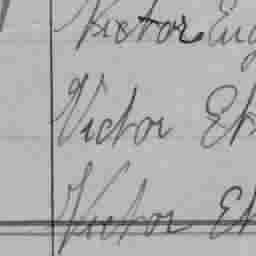 Victor Eug
Victor Et
Victor Et